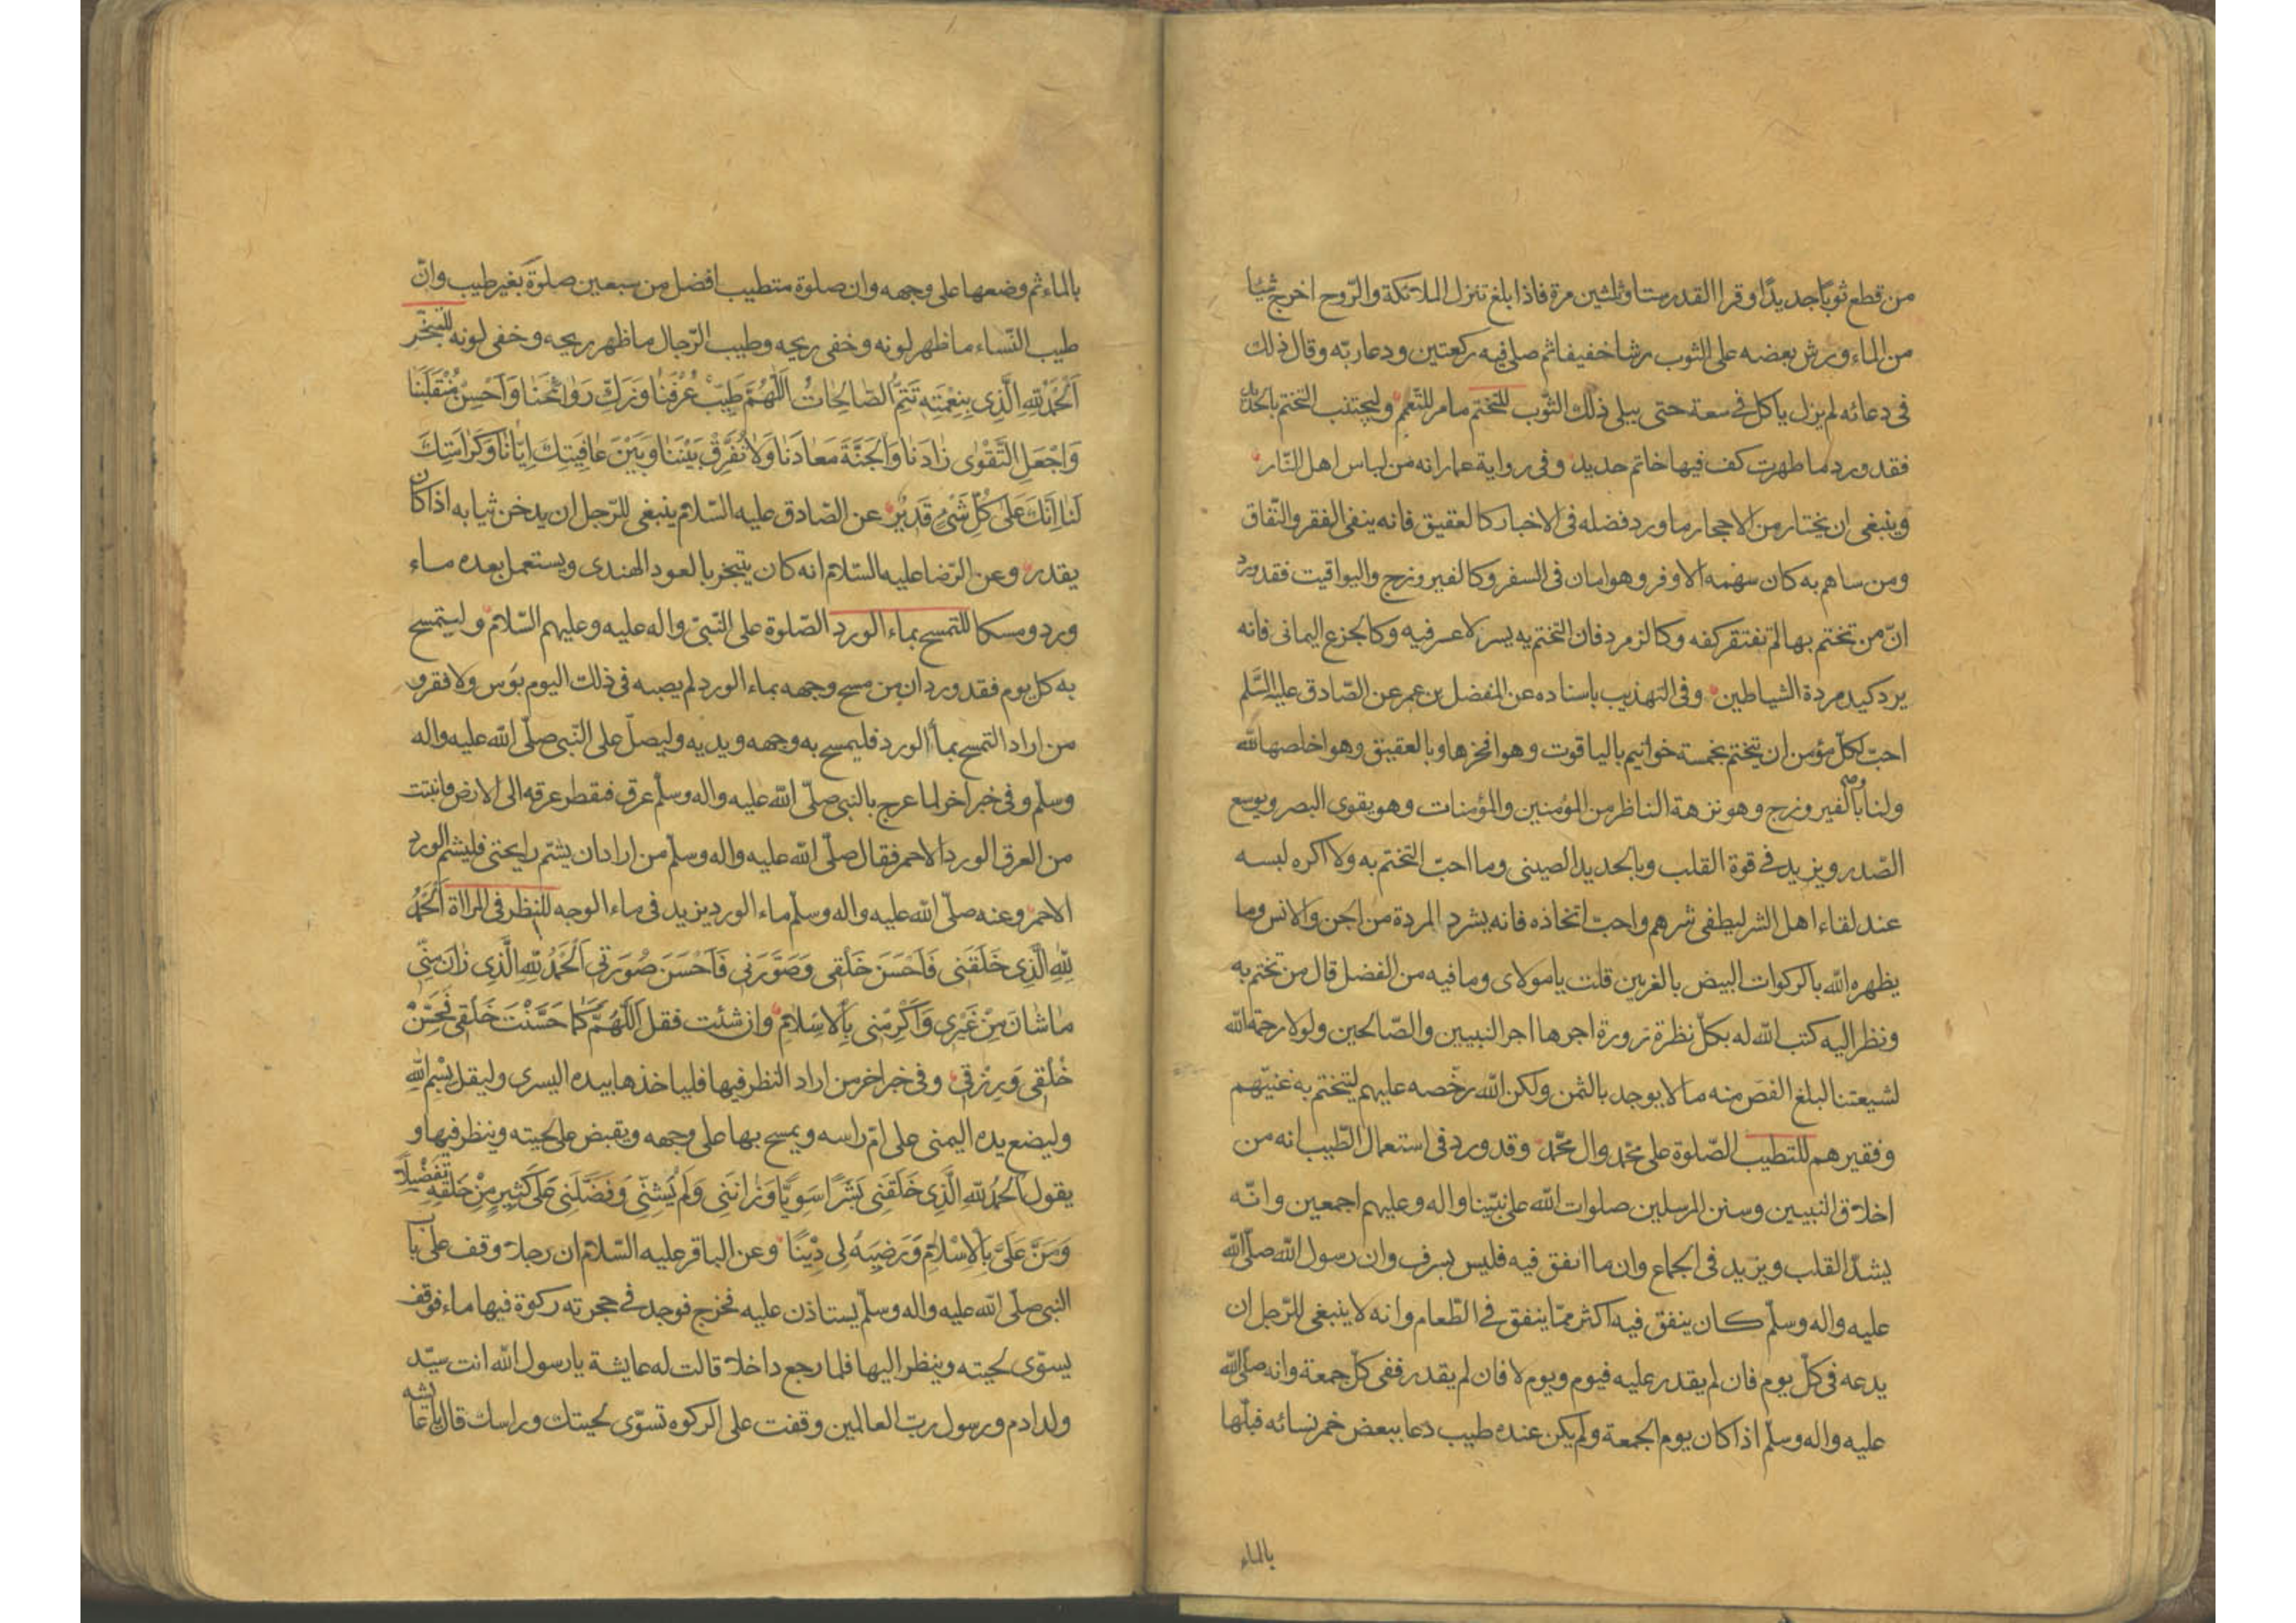 من قطع ثوبا جديدا وقرا القدر ستا وثلثين مرة فاذا بلغ تنزل الملائكة والروح اخرج شيئا
من الماء ورش بعضه على الثوب رشا خفيفا ثم صلى فيه ركعتين ودعا ربه وقال ذلك
فى دعائه لم يزل ياكل فى سعة حتى يبلى ذلك الثوب للتختم ما مر للتعمم وليجتنب التختم بالحديد
فقد ورد ما طهرت كف فيها خاتم حديد وفى رواية عمار انه من لباس اهل النار
وينبغى ان يختار من الاحجار ما ورد فضله فى الاخبار كالعقيق فانه ينفى الفقر والنفاق
ومن ساهم به كان سهمه الاوفر وهو امان فى السفر وكالفيروزج واليواقيت فقد ورد
انّ من تختم بها لم تفتقر كفه وكالزمرد فان التختم به يسر لا عسر فيه وكالجزع اليمانى فانه
يرد كيد مردة الشياطين وفى التهذيب باسناده عن المفضل بن عمر عن الصّادق عليه السّلم
احبّ لكلّ مؤمن ان يتختم بخمسة خواتيم بالياقوت وهو افخرها وبالعقيق وهو اخلصها لله
ولنا وبالفيروزج وهو نزهة الناظر من المؤمنين والمؤمنات وهو يقوى البصر ويوسع
الصّدر ويزيد فى قوة القلب وبالحديد الصينى وما احبّ التختم به ولا اكره لبسه
عند لقاء اهل الشر ليطفى شرهم واحبّ اتخاذه فانه يشرد المردة من الجن والانس وما
يظهره الله بالركوات البيض بالغريين قلت يا مولاى وما فيه من الفضل قال من تختم به
ونظر اليه كتب الله له بكلّ نظرة زورة اجرها اجر النبيين والصّالحين ولولا رحمة الله
لشيعتنا لبلغ الفص منه ما لا يوجد بالثمن ولكن الله رخّصه عليهم ليتختم به غنيّهم
وفقيرهم للتطيب الصّلوة على محمّد وال محمّد وقد ورد فى استعمال الطّيب انه من
اخلاق النبيين وسنن المرسلين صلوات الله على نبيّنا واله وعليهم اجمعين وانّه
يشدّ القلب ويزيد فى الجماع وان ما انفق فيه فليس بسرف وان رسول الله صلّى الله
عليه واله وسلّم كان ينفق فيه اكثر ممّا ينفق فى الطّعام وانه لا ينبغى للرّجل ان
يدعه فى كلّ يوم فان لم يقدر عليه فيوم ويوم لا فان لم يقدر ففى كلّ جمعة وانه صلّى الله
عليه واله وسلّم اذا كان يوم الجمعة ولم يكن عنده طيب دعا ببعض خمر نسائه فبلّها
بالماء
بالماء ثم وضعها على وجهه وان صلوة متطيب افضل من سبعين صلوة بغير طيب وانّ
طيب النّساء ما ظهر لونه وخفى ريحه وطيب الرّجال ما ظهر ريحه وخفى لونه للتبخّر
اَلْحَمْدُ لِلّهِ الَّذِى بِنِعْمَتِهِ تَتِمُّ الصّالِحاتُ اَللّهُمَّ طَيِّبْ عُرْفَنا وَزَكِّ رَوائِحَنا وَاَحْسِنْ مُنْقَلَبَنا
وَاجْعَلِ التَّقْوى زادَنا وَالْجَنَّةَ مَعادَنا وَلا تُفَرِّقْ بَيْنَنا وَبَيْنَ عافِيَتِكَ اِيّانا وَكَرامَتِكَ
لَنا اِنَّكَ عَلى كُلِّ شَىْءٍ قَدِيرٌ عن الصّادق عليه السّلام ينبغى للرّجل ان يدخن ثيابه اذا كان
يقدر وعن الرّضا عليه السّلام انه كان يتبخر بالعود الهندى ويستعمل بعده ماء
ورد ومسكا للتمسح بماء الورد الصّلوة على النّبىّ واله عليه وعليهم السّلام وليتمسح
به كل يوم فقد ورد ان من مسح وجهه بماء الورد لم يصبه فى ذلك اليوم بؤس ولا فقر و
من اراد التمسح بماء الورد فليمسح به وجهه ويديه وليصلّ على النّبى صلّى الله عليه واله
وسلّم وفى خبر اخر لما عرج بالنبى صلّى الله عليه واله وسلّم عرق فقطر عرقه الى الارض فانبتت
من العرق الورد الاحمر فقال صلّى الله عليه واله وسلّم من اراد ان يشمّ رايحتى فليشم الورد
الاحمر وعنه صلّى الله عليه واله وسلّم ماء الورد يزيد فى ماء الوجه للنظر فى المراة اَلْحَمْدُ
لِلّهِ الَّذِى خَلَقَنى فَاَحْسَنَ خَلْقى وَصَوَّرَنى فَاَحْسَنَ صُورَتى اَلْحَمْدُ لِلّهِ الَّذِى زانَ مِنّى
ما شانَ مِنْ غَيْرِى وَاَكْرَمَنى بِالْاِسْلامِ وان شئت فقل اَللّهُمَّ كَما حَسَّنْتَ خَلْقى فَحَسِّنْ
خُلْقى وَرِزْقى وفى خبر اخر من اراد النظر فيها فلياخذها بيده اليسرى وليقل بِسْمِ اللهِ
وليضع يده اليمنى على ام راسه ويمسح بها على وجهه ويقبض على لحيته وينظر فيها و
يقول اَلْحَمْدُ لِلّهِ الَّذِى خَلَقَنى بَشَرًا سَوِيًّا وَزانَنى وَلَمْ يَشِنّى وَفَضَّلَنى عَلى كَثِيرٍ مِنْ خَلْقِهِ تَفْضِيلًا
وَمَنَّ عَلَىَّ بِالْاِسْلامِ وَرَضِيَهُ لى دِيْنًا وعن الباقر عليه السّلام ان رجلا وقف على باب
النبى صلّى الله عليه واله وسلّم يستاذن عليه فخرج فوجد فى حجرته ركوة فيها ماء فوقف
يسوّى لحيته وينظر اليها فلما رجع داخلا قالت له عايشة يا رسول الله انت سيّد
ولد ادم ورسول ربّ العالمين وقفت على الركوه تسوّى لحيتك وراسك قال يا عايشه